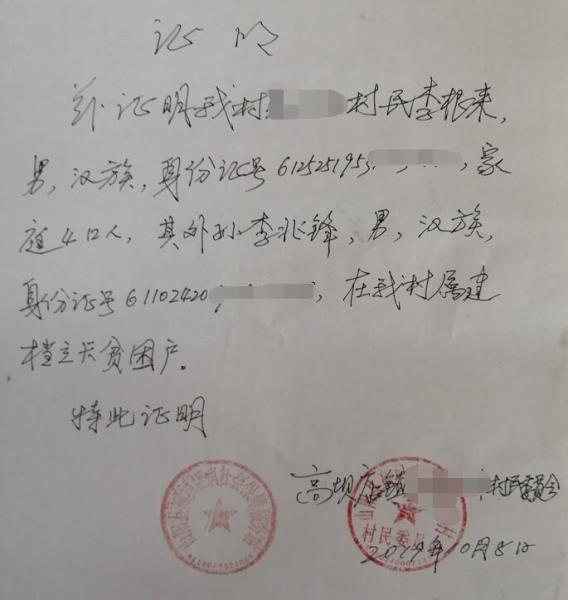 证明
兹证明我村 村民李根来,
男,汉族,身份证号612525195 ,家
庭4口人,其外孙李兆锋,男,汉族,
身份证号61102420 ,在我村属建
档立卡贫困户。
特此证明
高坝店镇 村民委员会
村民委员
2019年10月8日